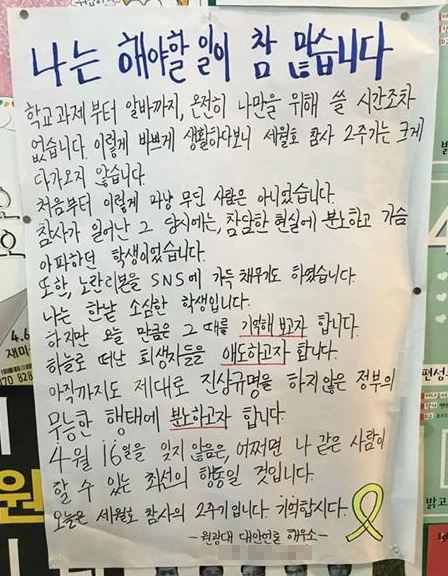 나는 해야할 일이 참 많습니다
학교과제부터 알바까지, 온전히 나만을 위해 쓸 시간조차
없습니다. 이렇게 바쁘게 생활하다보니 세월호 참사 2주기는 크게
다가오지 않습니다.
처음부터 이렇게 마냥 무딘 사람은 아니었습니다.
참사가 일어난 그 당시에는, 참담한 현실에 분노하고 가슴
아파하던 학생이었습니다.
또한, 노란리본을 SNS에 가득 채우기도 하였습니다.
나는 한낱 소심한 학생입니다.
하지만 오늘 만큼은 그 때를 기억해보고자 합니다.
하늘로 떠난 희생자들을 애도하고자 합니다.
아직까지도 제대로 진상규명을 하지않은 정부의
무능한 행태에 분노하고자 합니다.
4월 16일을 잊지않음은, 어쩌면 나 같은 사람이
할 수 있는 최선의 행동일 것입니다.
오늘은 세월호 참사의 2주기입니다. 기억합시다.
-원광대 대안언론 해우소-
4.6
재미
070 828
원
편성
밝고